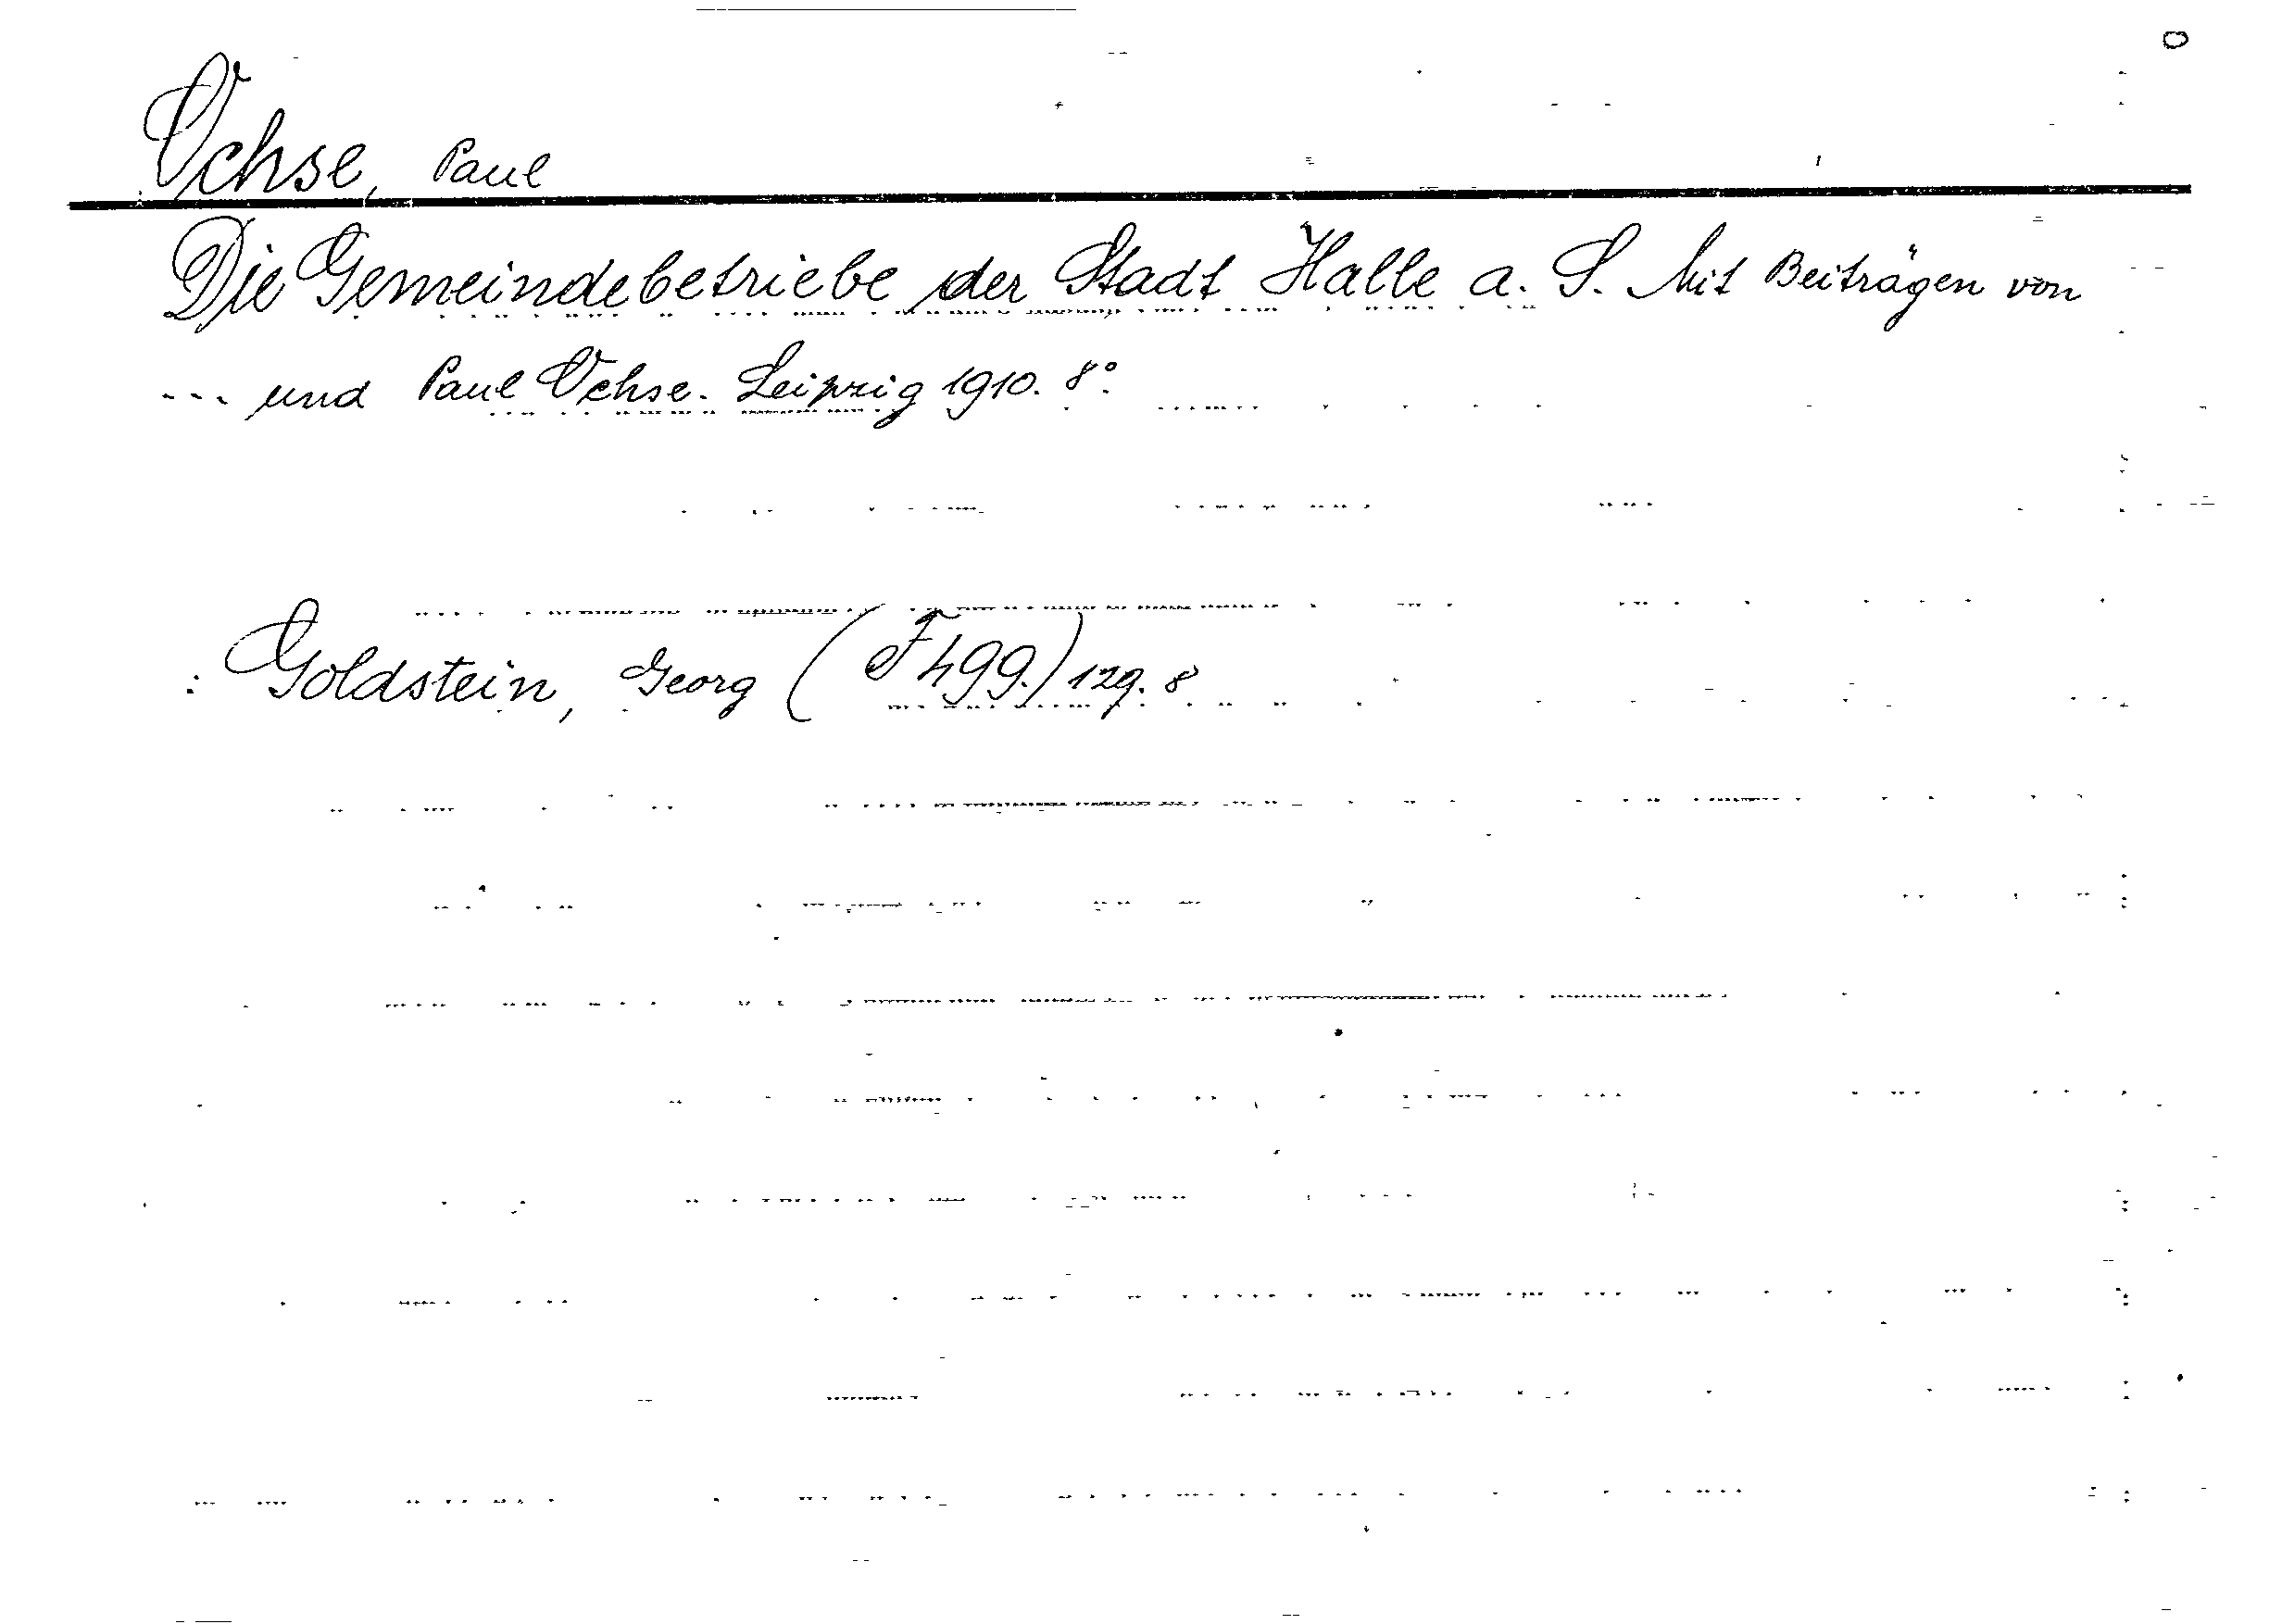 Ochse, Paul
Die Gemeindebetriebe der Stadt Halle a. S. Mit Beiträgen von
--- und Paul Ochse. Leipzig 1910. 8°.
: Goldstein, Georg (F 499.) 129. 8